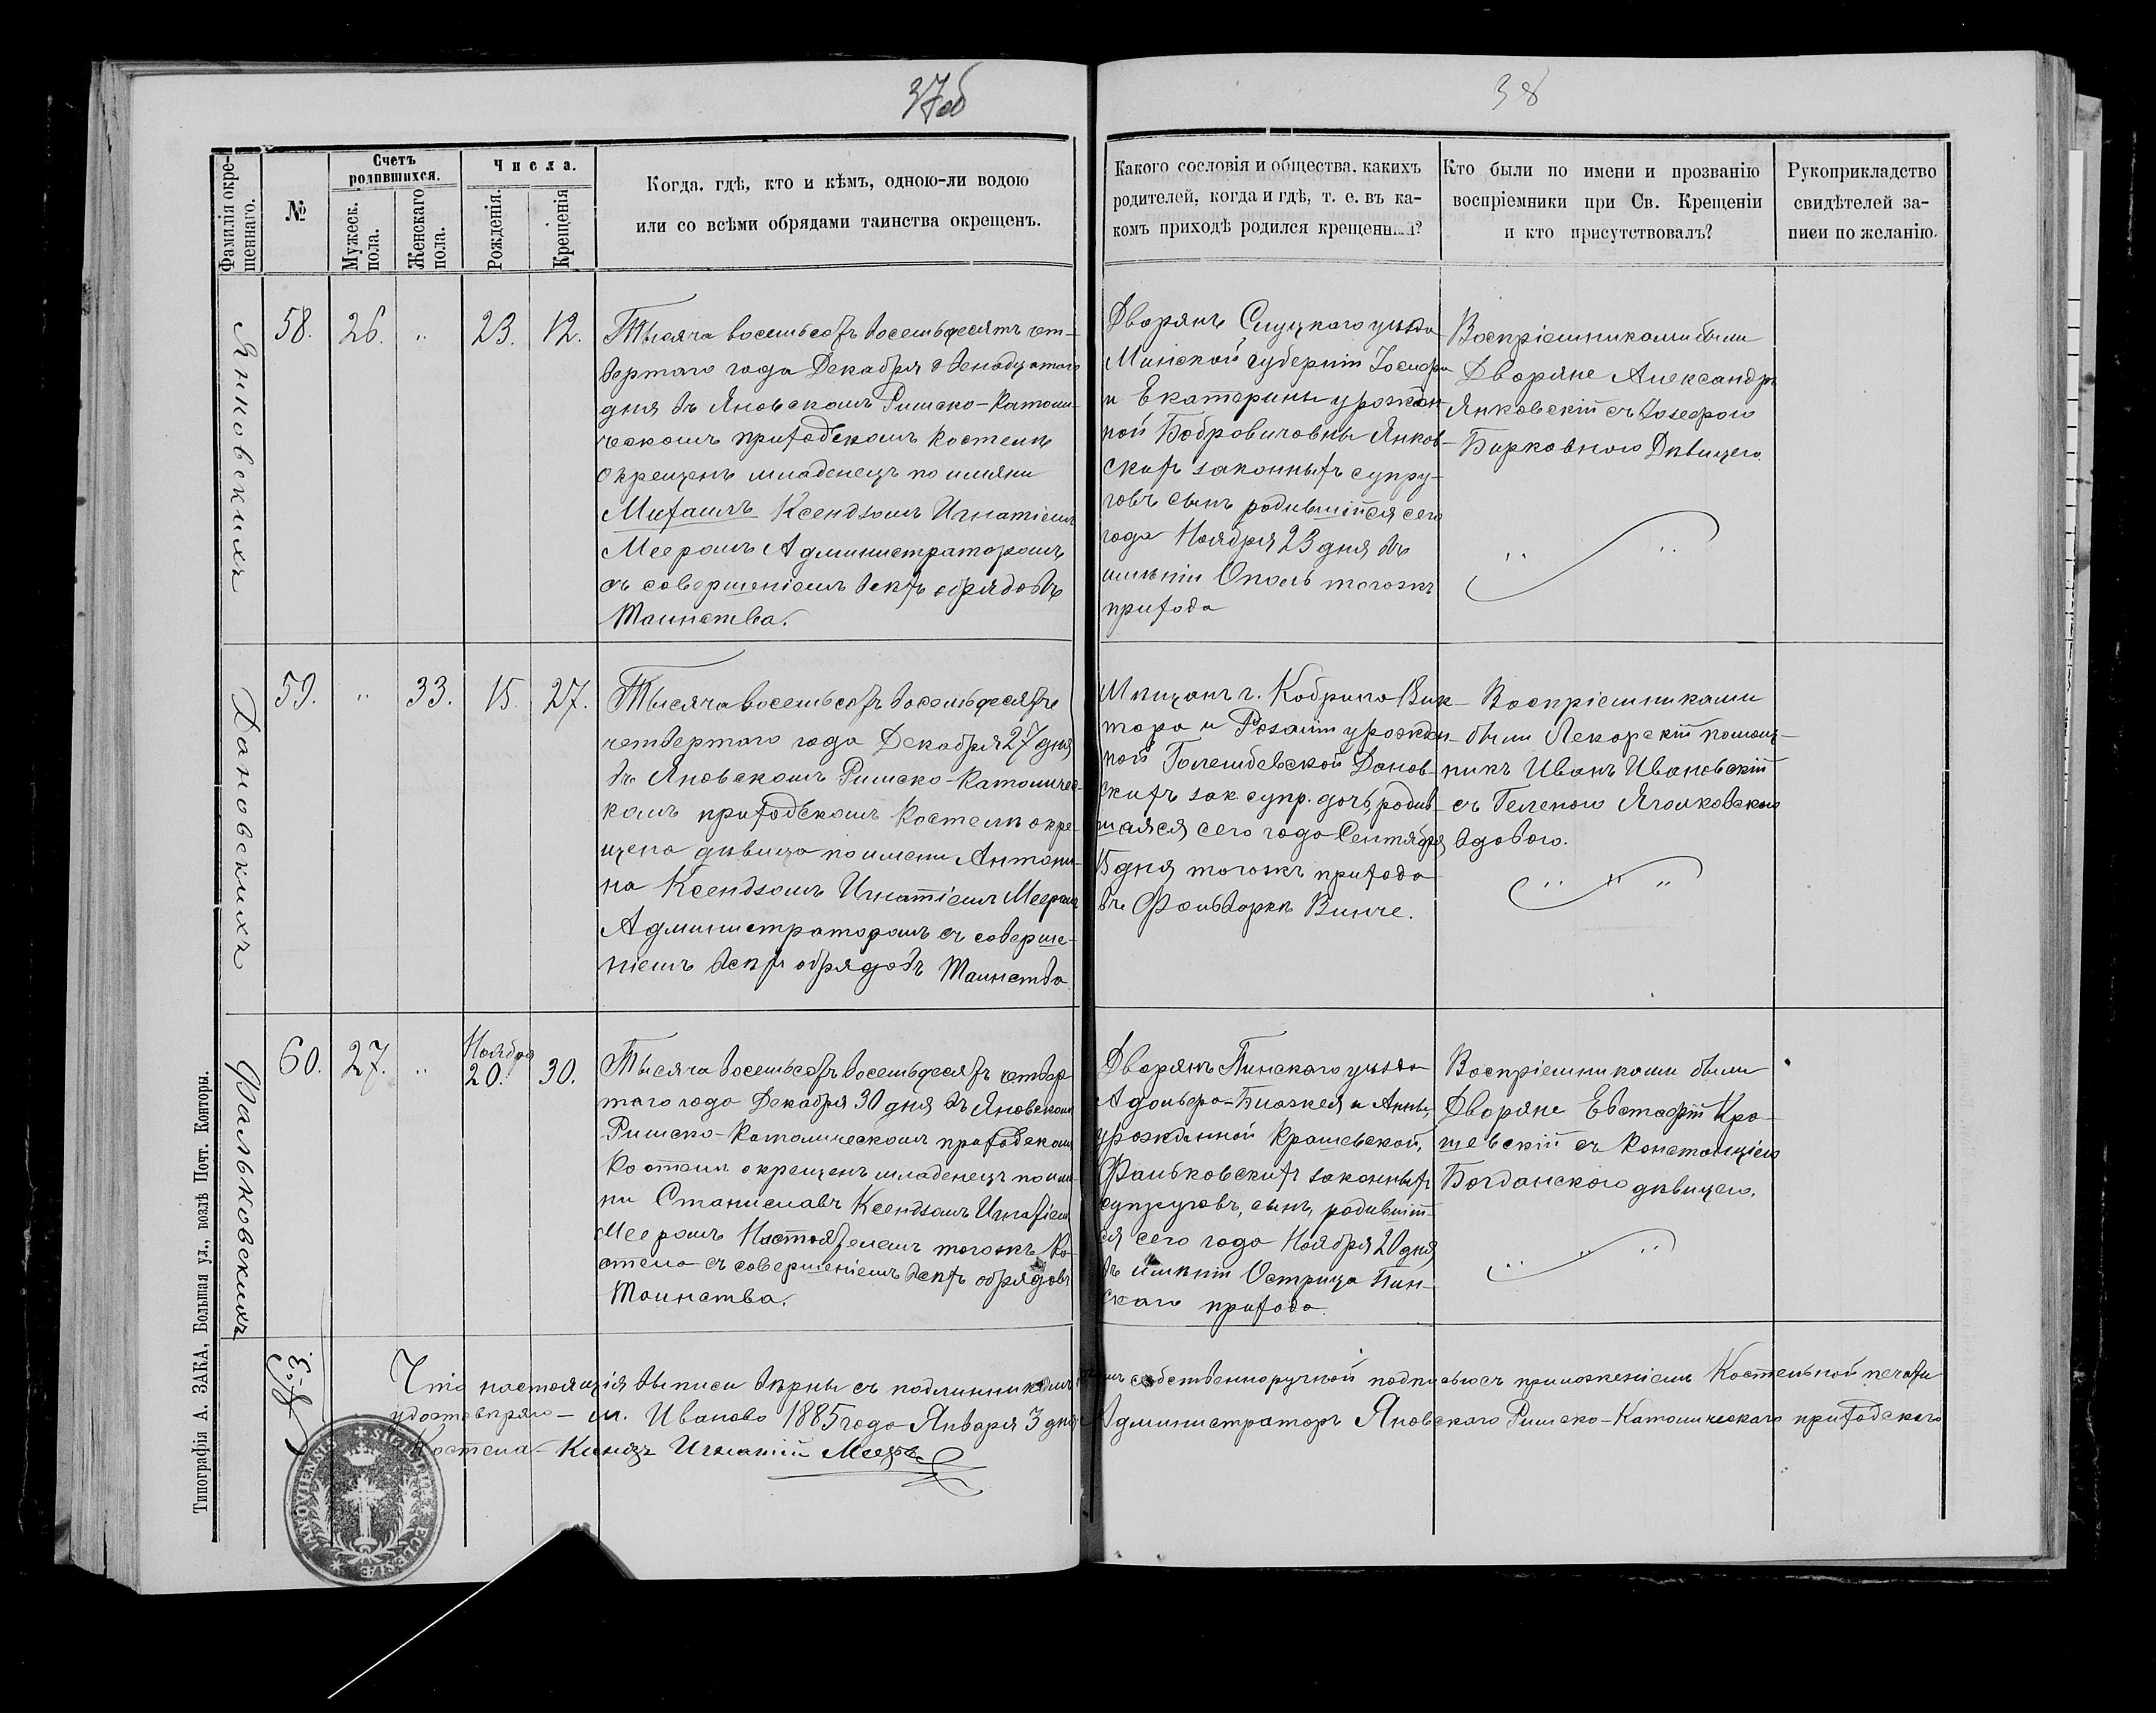 37об
38
Фамилія окре-
щеннаго.
№
Счетъ
родившихся.
Мужеск.
пола.
Женскаго
пола.
Числа.
Рожденія.
Крещенія
Когда, гдѣ, кто и кѣмъ, одною-ли водою
или со всѣми обрядами таинства окрещенъ.
Какого сословія и общества, какихъ
родителей, когда и гдѣ, т. е. въ ка-
комъ приходѣ родился крещенный?
Кто были по имени и прозванію
воспріемники при Св. Крещеніи
и кто присутствовалъ?
Рукоприкладство
свидѣтелей за-
писи по желанію.
Янковскихъ
58. 26. " 23. 12.
Тысяча восемьсотъ восемьдесятъ чет-
вертаго года Декабря двенадцатого
дня въ Яновскомъ Римско-Католи-
ческомъ приходскомъ костелѣ
окрещенъ младенецъ по имяни
Михаилъ Ксендзомъ Игнатіемъ
Мееромъ Администраторомъ
съ совершеніемъ всѣхъ обрядовъ
Таинства.
Дворянъ Слуцкаго уѣзда
Минской губерніи Іосифа
и Екатерины урожден-
ной Бобровичовны Янков-
скихъ законныхъ супру-
говъ сынъ родившійся сего
года Ноября 23 дня въ
имѣніи Ополь тогожъ
прихода
Воспріемниками были
Дворяне Александръ
Янковскій съ
Дѣвицею.
Дановскихъ
59. " 33. 15. 27.
Тысяча восемьсотъ восемьдесятъ
четвертаго года Декабря 27 дня
въ Яновскомъ Римско-Католичес-
комъ приходскомъ Костелѣ окре-
щена дѣвица по имени Антони-
на Ксендзомъ Игнатіемъ Мееромъ
Администраторомъ съ соверше-
ніемъ всѣхъ обрядовъ Таинства
Мѣщанъ г. Кобрина Вик-
тора и Розаліи урожден-
ной Голембевской Данов-
скихъ зак супр. дочь, родив-
шаяся сего года Сентября
15 дня тогожъ прихода
въ Фольваркѣ
Воспріемниками
были Лекарскій помощ-
никъ Иванъ Ивановскій
съ Геленою Яголковскою
вдовою.
Фальковскихъ
60. 27. " Ноября
20. 30.
Тысяча восемьсотъ восемьдесятъ четвер
таго года Декабря 30 дня въ Яновскомъ
Римско-Католическомъ приходскомъ
Костелѣ окрещенъ младенецъ по име-
ни Станиславъ Ксендзомъ Игнатіемъ
Мееромъ Настоятелемъ тогожъ Ко-
стела съ совершеніемъ всѣхъ обрядовъ
Таинства.
Дворянъ Пинскаго уѣзда
Адольфа-Блажея и Анны,
урожденной Крашевской,
Фальковскихъ законныхъ
супруговъ, сынъ, родившій-
ся сего года Ноября 20 дня
въ имѣніи Острица Пин-
скаго прихода.
Воспріемниками были
Дворяне Евстафій Кра-
шевскій съ Констанціею
Богданскою дѣвицею.
Что настоящія выписи вѣрны съ подлинникомъ собственноручной подписью съ приложеніемъ Костельной печати
удостовѣряю - м. Иваново 1885 года Января 3 дня Администраторъ Яновскаго Римско-Католическаго приходскаго
Костела - Ксендзъ Игнатій Мееръ
Типографія А. ЗАКА, Большая ул., возлѣ Почт. Конторы.